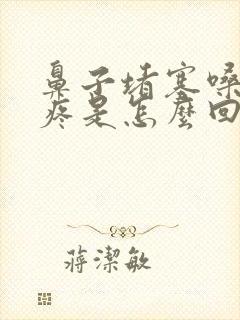 鼻子堵塞嗓
疼是怎麼回
蔣潔敏